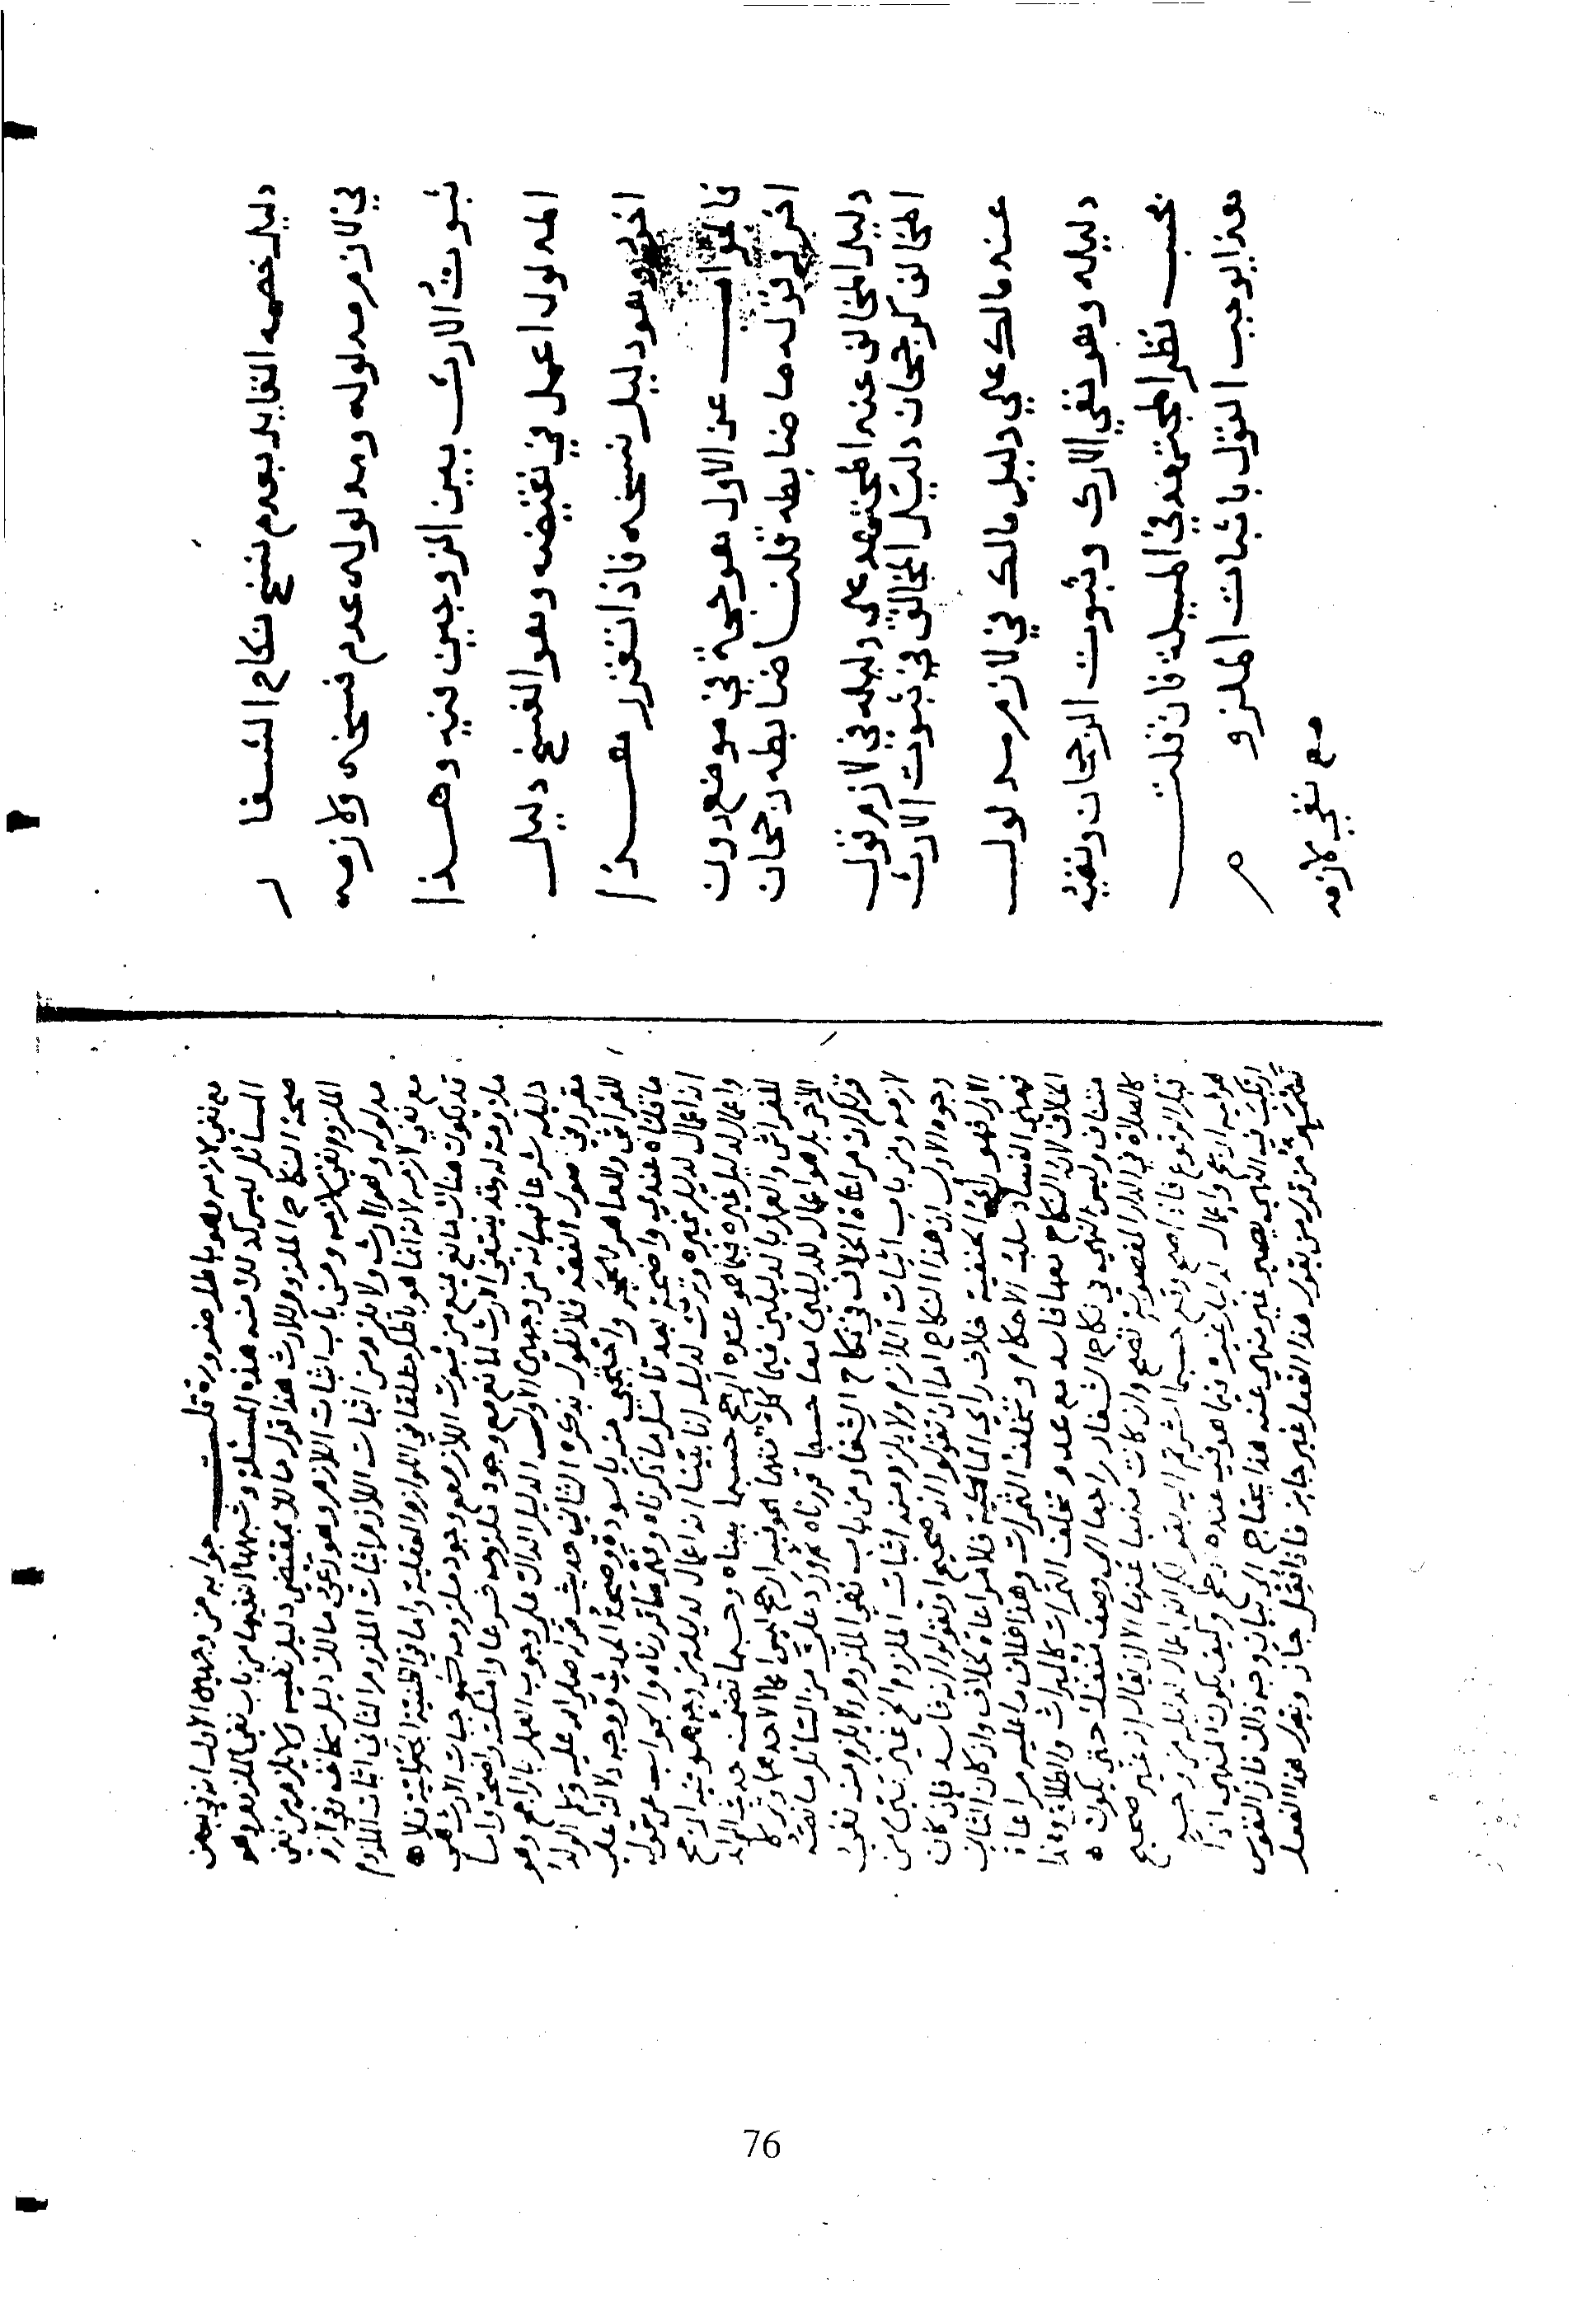 دليل خصمه القايل بعدم فسخ نكاح الشغا ر
في لازم مدلوله ومدلوله عدم فسخه ولازمه
ثبوت الارث بين الزوجين فيه وهذا
المدلول اعمل في نقيضه وهو الفسخ دليل
اخر وهو دليل فسخه فاذا تقرر هذا
فالجواب عن الاول هو حجة في موضع دون
اخر قوله ما ضابطه قلت ضابطه رجحان
دليل المخالف عند المجتهد على دليله في لازم قول
المخالف كرجحان دليل المخالف في ثبوت الارث
عند مالك على دليل مالك في لازم مدلول
دليله وهو نفي الارث وثبوت الرجحان ونفيه
بحسب نظر المجتهد في المسيلة فان قلت
هذا يوجب القول باثبات الملزو م
مع نفي لازمه
مع نفي لازمه وهو باطل ضرورة قلت جوابه من وجهين الاول انه في بعض
المسائل ليس كذلك منه هذه المسئلة وشبهها انها من باب نفي الملزوم وهو
صحة النكاح الملزوم للارث هذا قول مالك بمقتضى دليل نفيه ولا يلزم من نفي
الملزوم نفي لازمه ومن باب اثبات اللازم وهو رعي مالك دليل مخالفه في لازم
مدلوله وهو الارث ولا يلزم من اثبات اللازم اثبات الملزوم الثاني اثبات الملزوم
مع نفي لازمه لا انما هو باطل مطلقا في اللوازم العقلية واما في الظنية الجعلية فلا
قد يكون هناك مانع يمنع من ثبوت اللازم مع وجود ملزومه كموجبات الارث هي
ملازمة له وقد ينتفي الارث لمانع مع وجود ملزومه شرعا وامثلته واضحة واما
دليله شرعا فبيانه من وجهين الاول الدليل الدال على وجوب العمل بالراجح وهو
مقرر في اصول الفقه فلا نطول بذكره الثاني حديث قوله صلى الله عليه وسلم الولد
للفراش وللعاهر الحجر واحتجبي منه يا سودة وصحة الحديث ووجه دلالته على
ما قلناه عندي واضحة بعد تامل ما ذكرناه وفهم ما قررناه والجواب عن قوله
ان اعمال لدليل غيره وترك لدليله انا بينا انه اعمال لدليله من وجه هو فيه ارجح
واعمال لدليل غيره فيما هو عنده ارجح حسبما بيناه وحسبما تضمنه حديث الولد
للفراش والعمل بالدليلين فيما كل منهما هو فيه ارجح ليس اعمالا لاحدهما وترك
الاخر بل هو اعمال للدليلين معا حسبما قررناه
قولكم ان مراعاة الخلاف في نكاح الشغار من باب نفي الملزوم ولا يلزم منه نفي
لازمه ومن باب اثبات اللازم ولا يلزم منه اثبات الملزوم
وجوه الاول ان هذا النكاح اما ان تقولوا انه صحيح او تقولوا انه فاسد فان كان
الاول فهو راي الحنفية خلاف راي المالكية فلا مراعاة لخلاف وان كان الثاني
فمعنى الفساد سلب الاحكام وتخلف الثمرات وهذا خلاف ما عليه مراعاة
الخلاف لان النكاح معها فاسد مع عدم تخلف الثمرات كالميراث والطلاق وهذا
متناف وليس النهي في نكاح الشغار راجعا الى وصف منفك حتى يكون
كالصلاة في الدار المغصوبة تصح وان كانت منهيا عنها
قبل الوقوع
هو فيه ارجح واعمال لدليل غيره فيما هو فيه عنده ارجح وكيف يكون المنهي اذا
ارتكب فيه النهي يصير غير منهي عنه هذا يحتاج الى بيان وجه ذلك فان النفوس
هذا الفعل غير جايز فاذا فعل جاز ونفوذ هذا الفعل
76